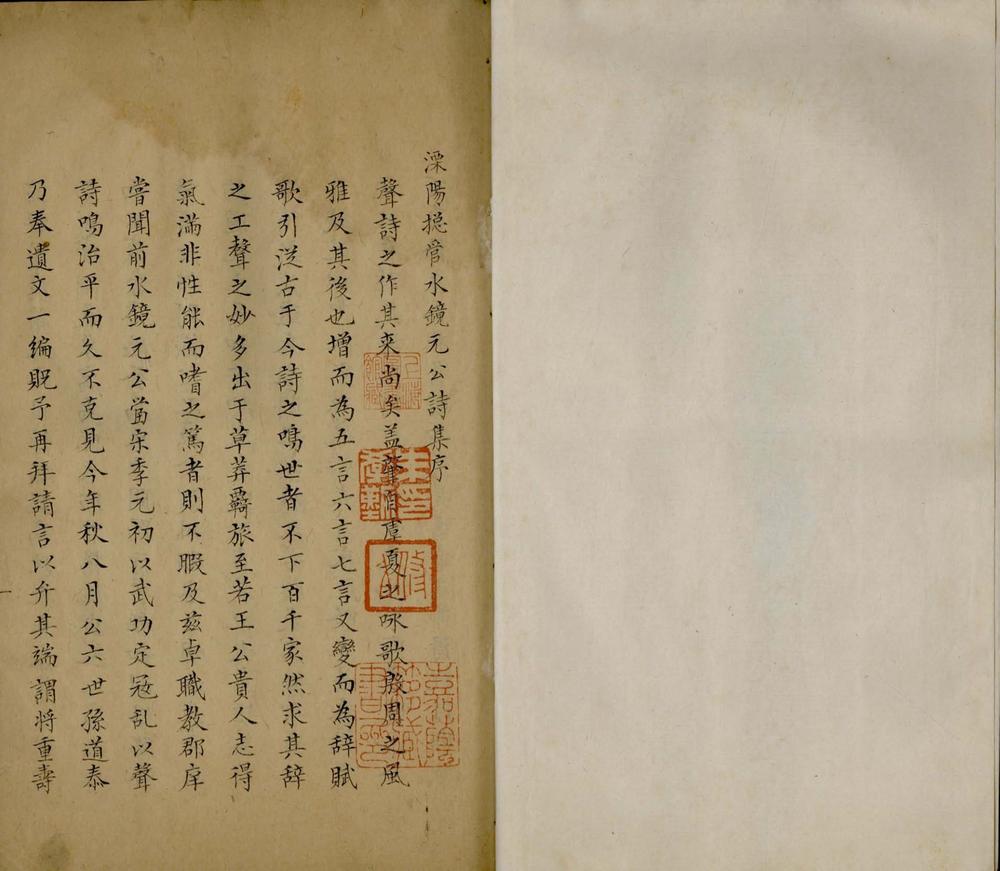 溧陽揔管水鏡元公詩集序
聲詩之作其来尚矣盖肇自虞夏之咏歌殷周之風
雅及其後也增而為五言六言七言又變而為辞賦
歌引従古于今詩之鳴世者不下百千家然求其辞
之工聲之妙多出于草莽羇旅至若王公貴人志得
氣滿非性能而嗜之篤者則不暇及茲卓職教郡庠
嘗聞前水鏡元公當宋季元初以武功定冦乱以聲
詩鳴治平而久不克見今年秋八月公六世孫道泰
乃奉遺文一編貺予再拜請言以弁其端謂将重壽
嘉蔭簃藏書印